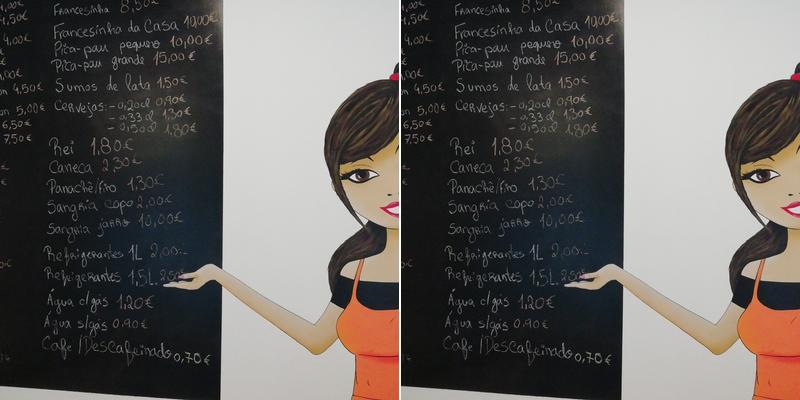 Francesinha 8,50€
Francesinha da Casa 10,00€
Pica-pau pequeno 10,00€
Pica-pau grande 15,00€
Sumos de lata 1,50€
Cervejas: - 0,20cl 0,90€
- 0,33cl 1,30€
- 0,50cl 1,80€
Rei 1,80€
Caneca 2,30€
Panaché/Fino 1,30€
Sangria copo 2,00€
Sangria jarro 10,00€
Refrigerantes 1L 2,00
Refrigerantes 1,5L 2,50
Água c/gás 1,20€
Água s/gás 0,90€
Café/Descafeinado 0,70€
4,50€
4,00€
4,50€
5,00€
6,50€
7,50€
Francesinha 8,50€
Francesinha da Casa 10,00€
Pica-pau pequeno 10,00€
Pica-pau grande 15,00€
Sumos de lata 1,50€
Cervejas: - 0,20cl 0,90€
- 0,33cl 1,30€
- 0,50cl 1,80€
Rei 1,80€
Caneca 2,30€
Panaché/Fino 1,30€
Sangria copo 2,00€
Sangria jarro 10,00€
Refrigerantes 1L 2,00
Refrigerantes 1,5L 2,50
Água c/gás 1,20€
Água s/gás 0,90€
Café/Descafeinado 0,70€
4,50€
4,00€
4,50€
5,00€
6,50€
7,50€